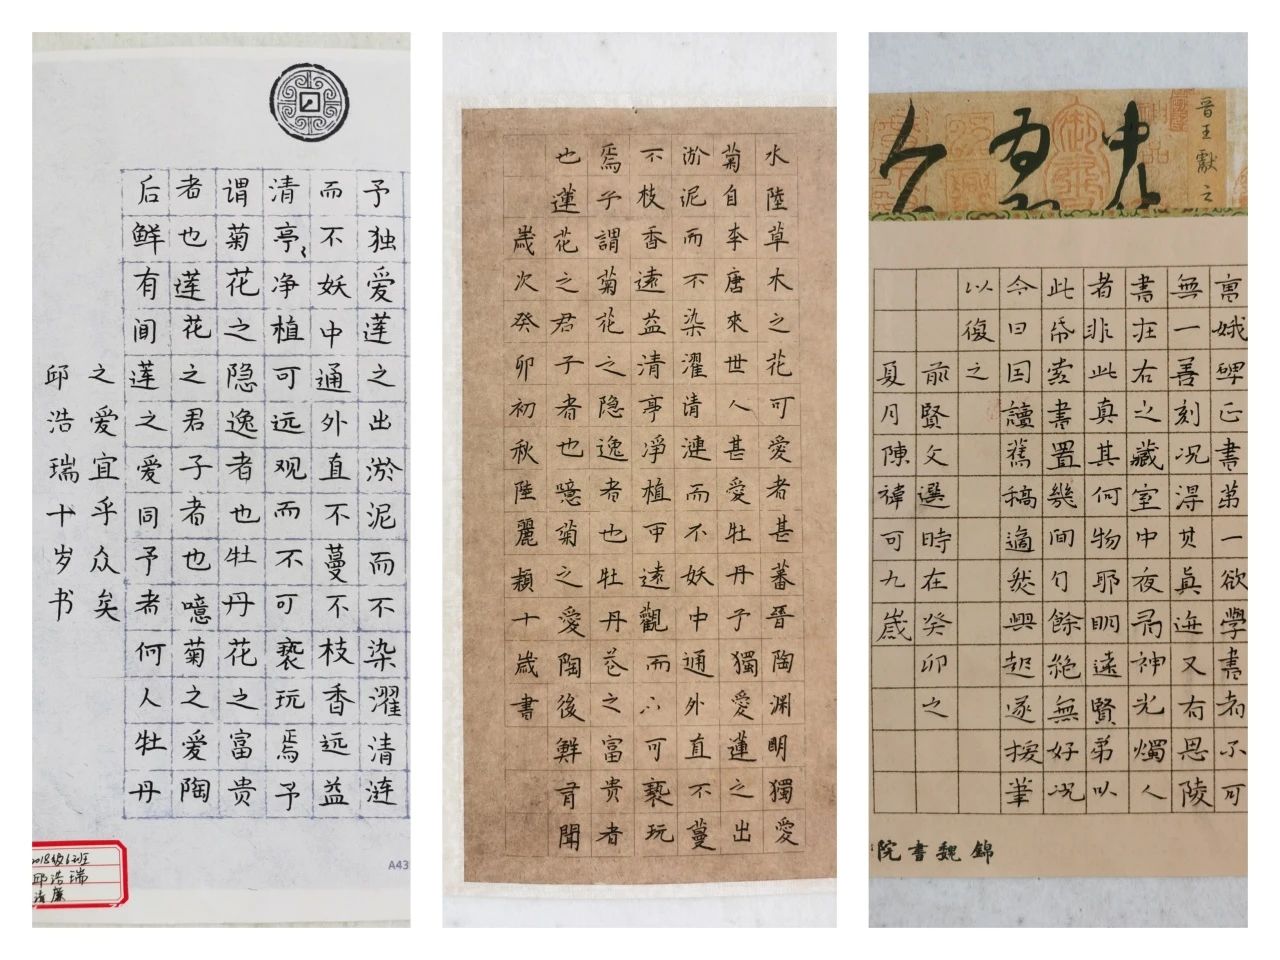 予独爱莲之出淤泥而不染濯清涟
而不妖中通外直不蔓不枝香远益
清亭、净植可远观而不可亵玩焉予
谓菊花之隐逸者也牡丹花之富贵
者也莲花之君子者也噫菊之爱陶
后鲜有间莲之爱同予者何人牡丹
之爱宜乎众矣
邱浩瑞十岁书
2018级6班
邱浩瑞
清廉
A43
水陸草木之花可愛者甚蕃晉陶渊明獨愛
菊自李唐來世人甚愛牡丹予獨愛蓮之出
淤泥而不染濯清漣而不妖中通外直不蔓
不枝香遠益清亭淨植甲遠觀而不可褻玩
焉予謂菊花之隐逸者也牡丹花之富贵者
也蓮花之君子者也噫菊之愛陶後鮮有聞
歲次癸卯初秋陸麗颖十歲書
晋王獻之
娥碑正書第一欲學書者不可
無一善刻况得其真迹又有思陵
書在右之藏室中夜神光燭人
者非此真其何物耶明遠賢弟以
此帋索書置幾間旬餘絶無好况
今日因讀舊稿適然興起遂援筆
以復之
前賢文選時在癸卯之
夏月陳禕可九歲
錦魏書院